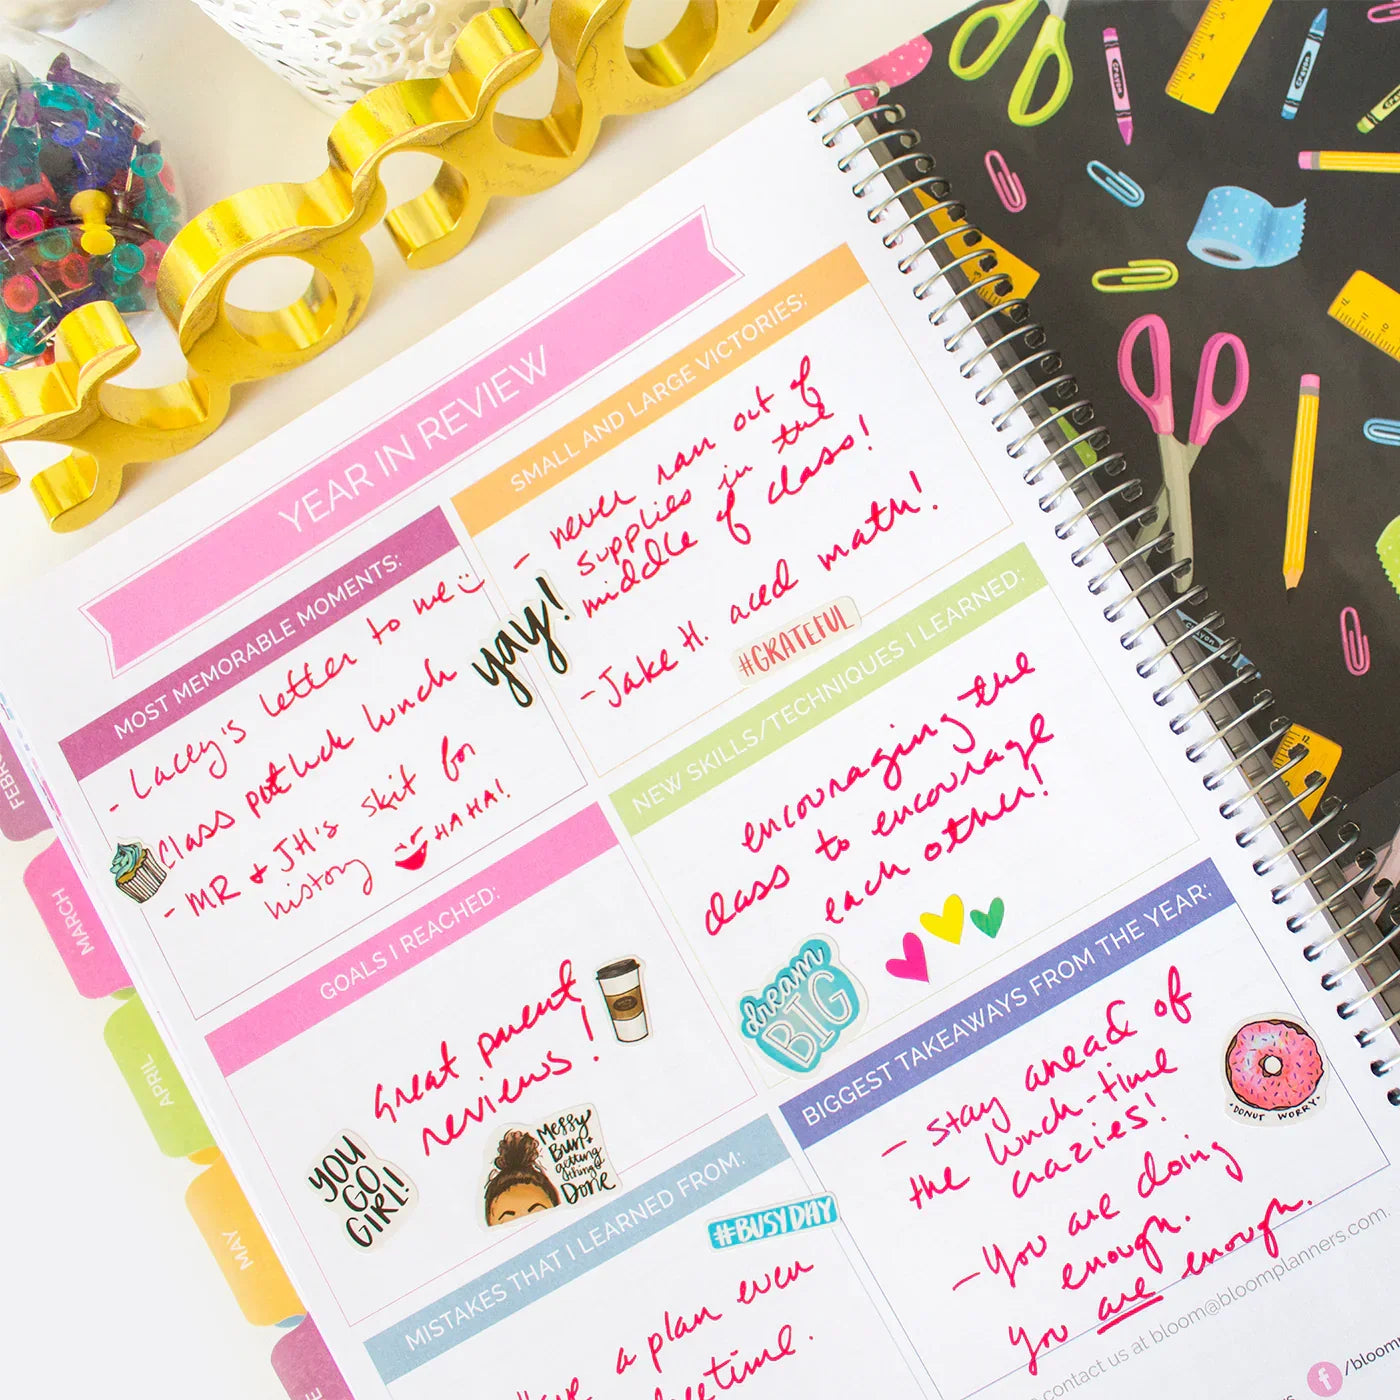 YEAR IN REVIEW
MOST MEMORABLE MOMENTS:
- Lacey's letter to me
Class potluck lunch
- MR + JH's skit for
history HAHA!
yay!
SMALL AND LARGE VICTORIES:
- never ran out of
supplies in the
middle of class!
- Jake H. aced math!
#GRATEFUL
GOALS I REACHED:
Great parent
reviews!
YOU
GO
GIRL!
Messy
Bun +
getting
things
Done
NEW SKILLS/TECHNIQUES I LEARNED:
encouraging the
class to encourage
each other!
dream
BIG
MISTAKES THAT I LEARNED FROM:
#BUSYDAY
a plan even
BIGGEST TAKEAWAYS FROM THE YEAR:
- Stay ahead of
the lunch-time
crazies!
- You are doing
enough.
You are enough.
DONUT WORRY
contact us at bloom@bloomplanners.com.
f /bloom
MARCH
APRIL
MAY
crayon
crayon